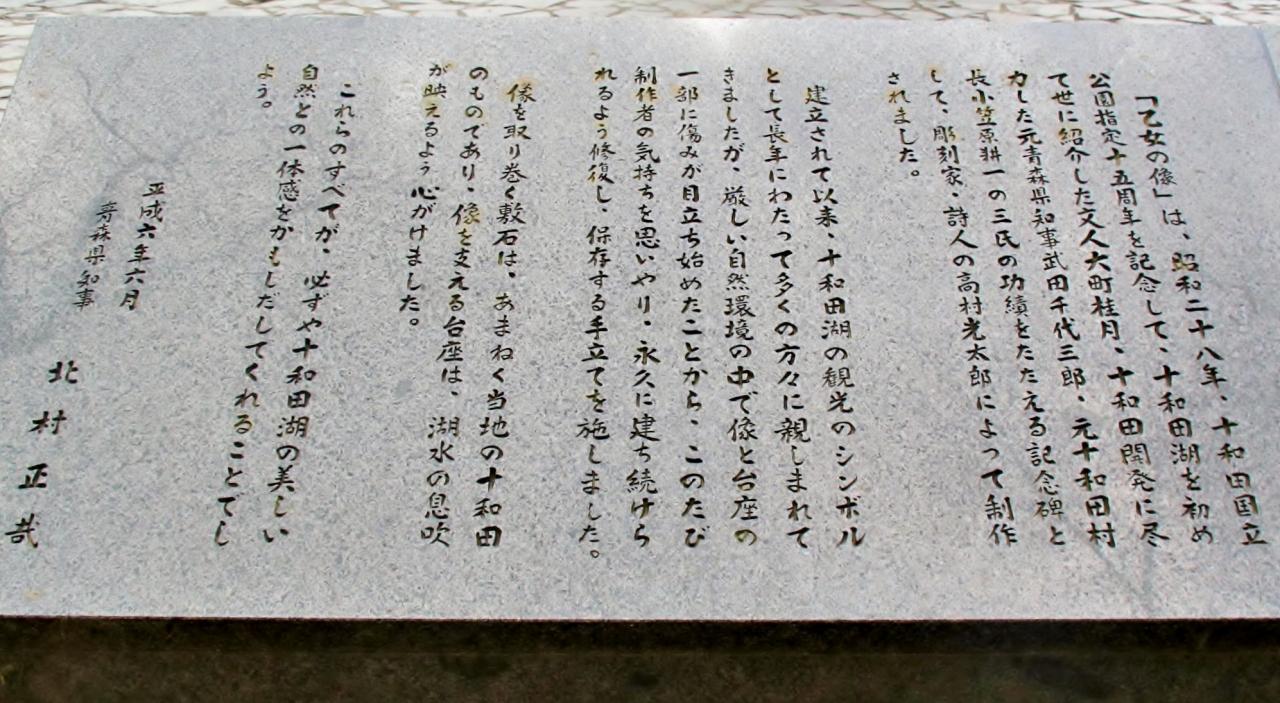 「乙女の像」は、昭和二十八年、十和田国立
公園指定十五周年を記念して、十和田湖を初め
て世に紹介した文人大町桂月、十和田開発に尽
力した元青森県知事武田千代三郎、元十和田村
長小笠原耕一の三氏の功績をたたえる記念碑と
して、彫刻家、詩人の高村光太郎によって制作
されました。
建立されて以来、十和田湖の観光のシンボル
として長年にわたって多くの方々に親しまれて
きましたが、厳しい自然環境の中で像と台座の
一部に傷みが目立ち始めたことから、このたび
制作者の気持ちを思いやり、永久に建ち続けら
れるよう修復し、保存する手立てを施しました。
像を取り巻く敷石は、あまねく当地の十和田
のものであり、像を支える台座は、湖水の息吹
が映えるよう心がけました。
これらのすべてが、必ずや十和田湖の美しい
自然との一体感をかもしだしてくれることでし
ょう。
平成六年六月
青森県知事
北村正哉